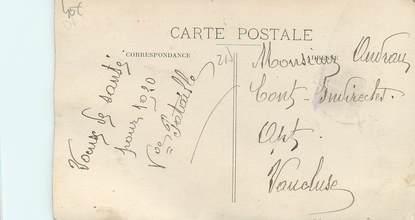 CARTE POSTALE
CORRESPONDANCE
Voeux de santé
pour 1920
Vve
Monsieur Audran
Cont. Indirectes
Apt
Vaucluse